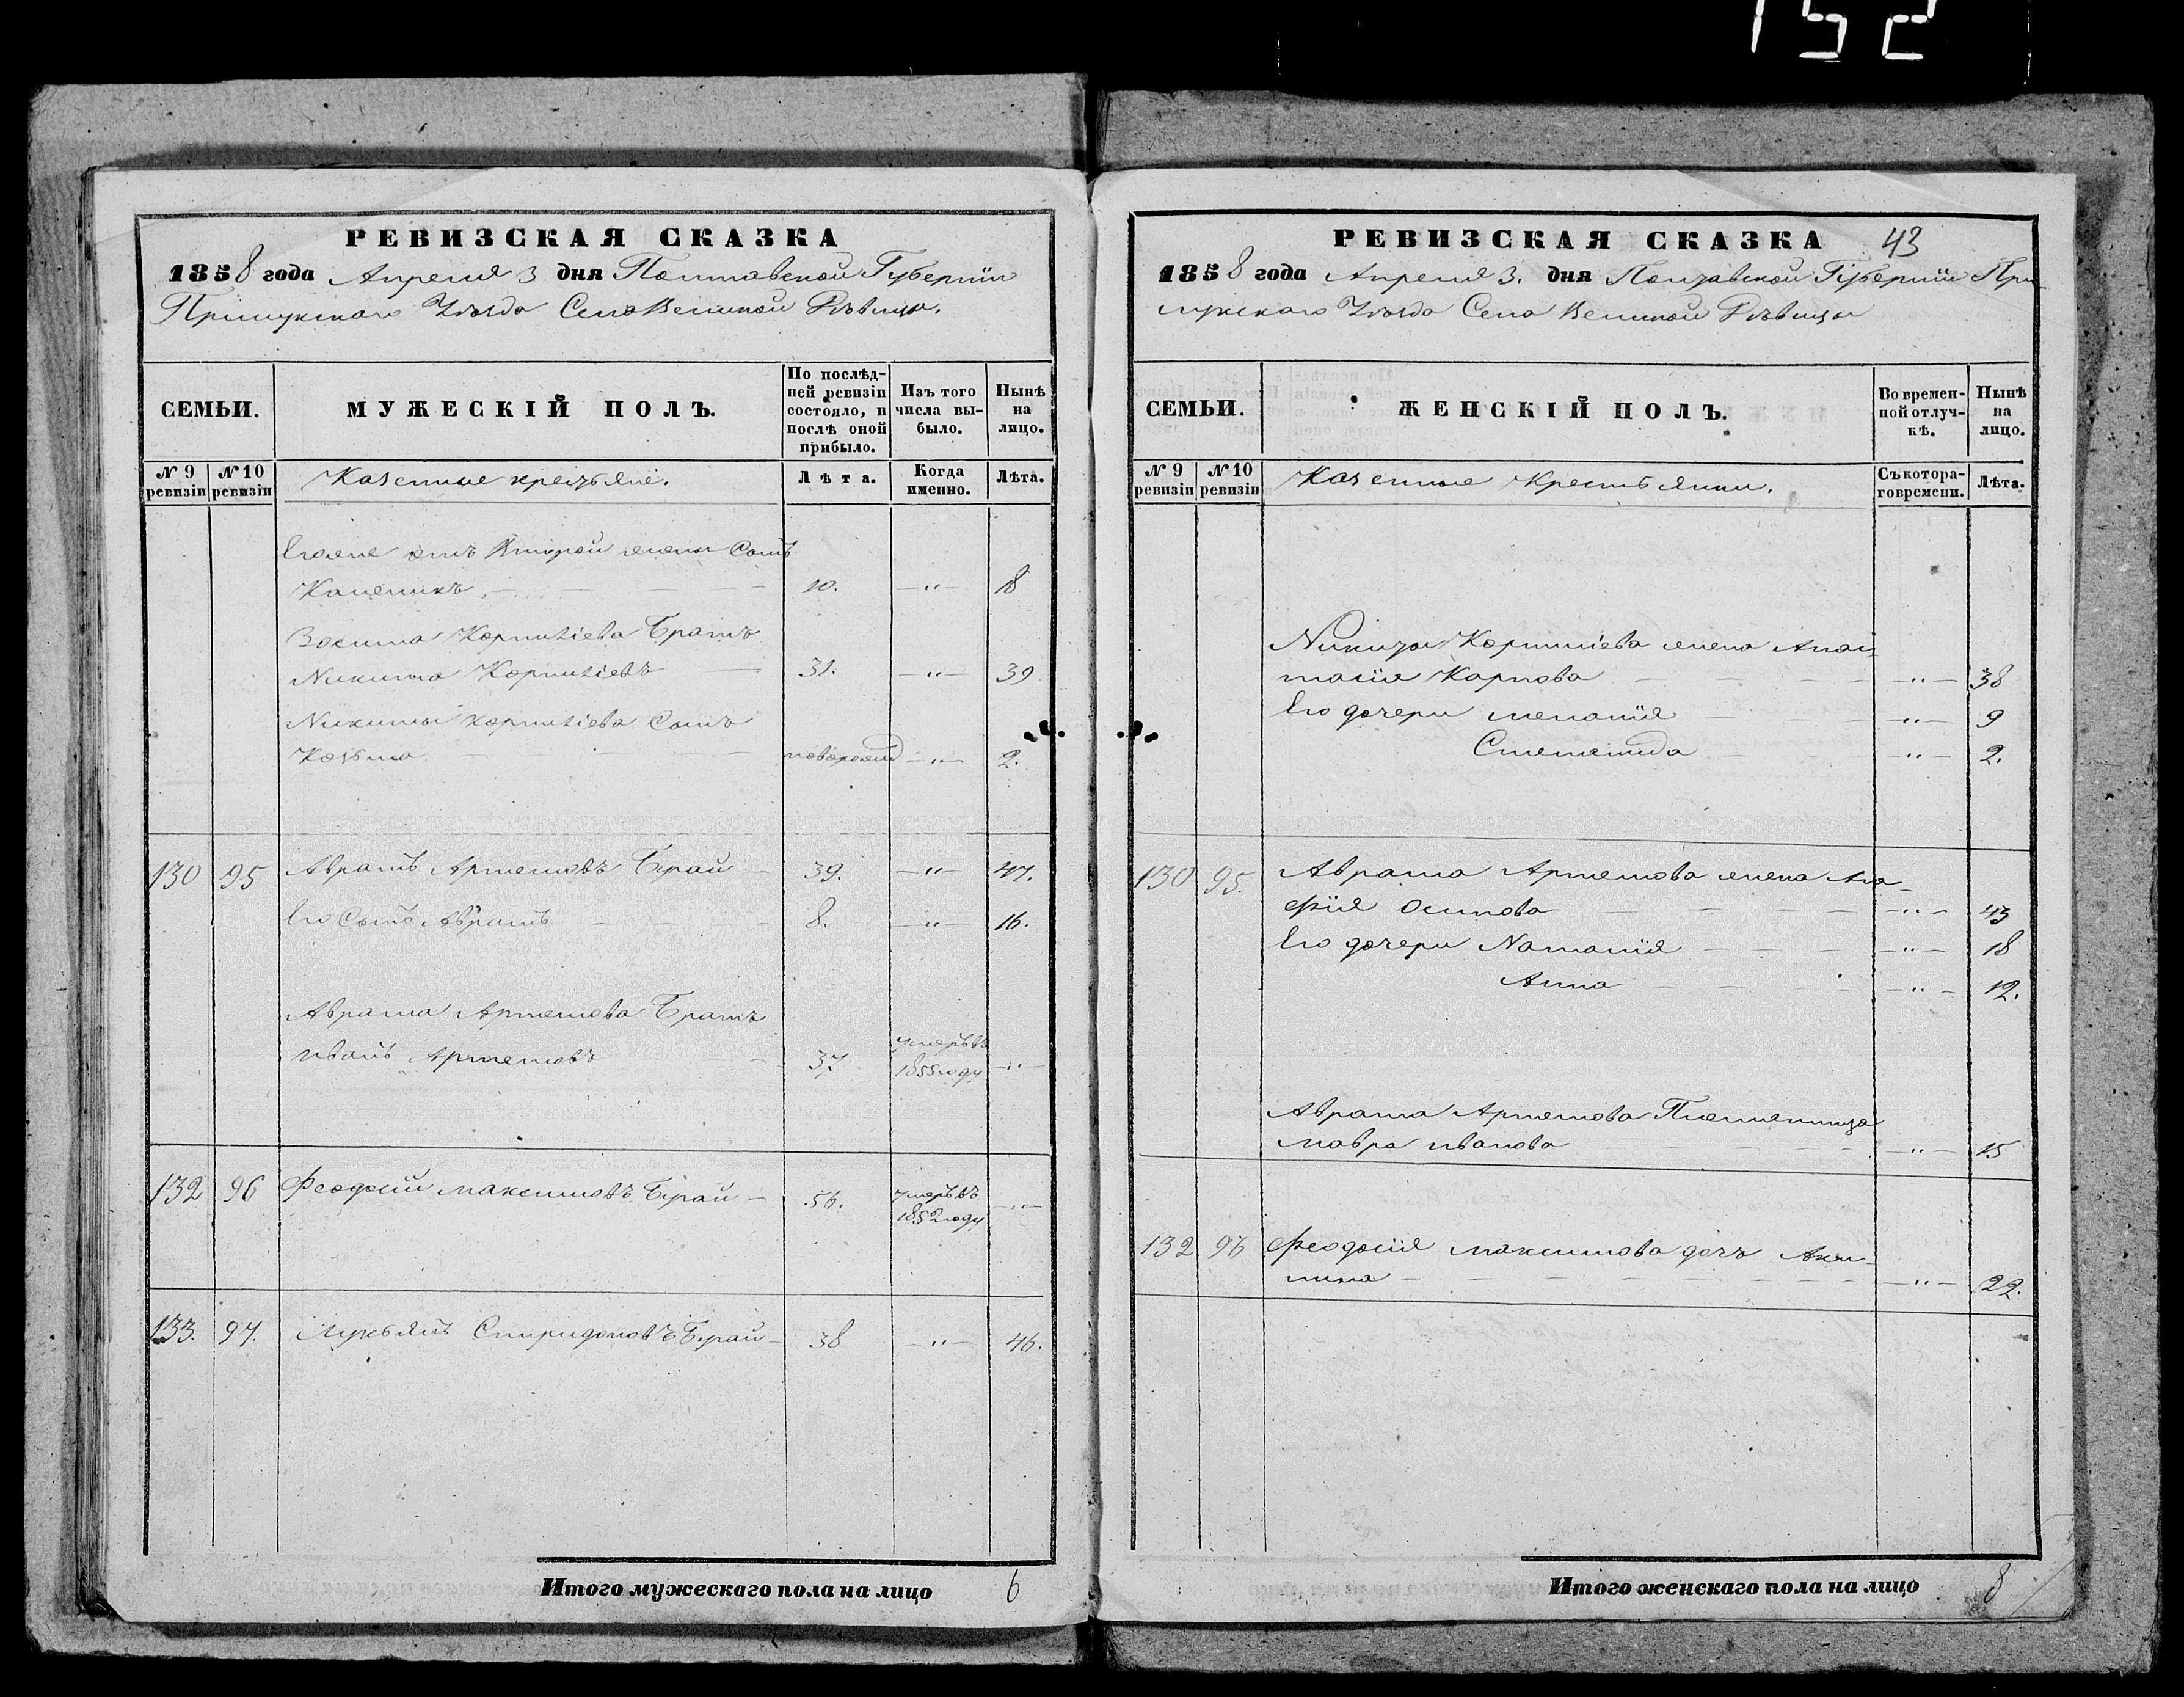 152
РЕВИЗСКАЯ СКАЗКА
1858 года Апреля 3 дня Полтавской Губерніи
Прилукскаго Уѣзда Села Великой Дѣвицы.
СЕМЬИ.
МУЖЕСКІЙ ПОЛЪ.
По послѣд-
ней ревизіи
состояло, и
послѣ оной
прибыло.
Изъ того
числа вы-
было.
Нынѣ
на
лицо.
№ 9
ревизіи
№ 10
ревизіи
Казенные крестьяне.
Лѣта.
Когда
именно.
Лѣта.
Егоже отъ Второй жены Сынъ
10. — " — 18
Корнилiева Братъ
Никита Корнилiевъ — 31. — " — 39
Никиты Корнилiева Сынъ
Козьма — новорожд — " — 2.
130 95 Аврамъ Артемовъ Бурай — 39. — " — 47.
Его Сынъ Аврамъ — 8. — " — 16.
Аврама Артемова Братъ
Иванъ Артемовъ — 37 умеръ въ 1855 году — " —
132 96 Феодосій Максимовъ Бурай — 56. умеръ въ 1852 году — " —
133. 97. Лукьянъ Спиридоновъ Бурай — 38 — " — 46.
Итого мужескаго пола на лицо 6
РЕВИЗСКАЯ СКАЗКА 43
1858 года Апреля 3. дня Полтавской Губерніи При-
лукскаго Уѣзда Села Великой Дѣвицы
СЕМЬИ.
ЖЕНСКІЙ ПОЛЪ.
Во времен-
ной отлуч-
кѣ.
Нынѣ
на
лицо.
№ 9
ревизіи
№ 10
ревизіи
Казенные Крестьянки.
Съ котора-
го времени.
Лѣта.
Никиты Корнилiева жена Анас-
тасія Карпова — " — 38
Его дочери Меланія — " — 9
Степанида — " — 2.
130 95. Аврама Артемова жена Ага-
фія Осипова — " — 43
Его дочери Наталія — " — 18
Анна — " — 12.
Аврама Артемова Племянница
Мавра Иванова — " — 15
132 96 Феодосія Максимова дочь Аку-
лина — " — 22.
Итого женскаго пола на лицо 8